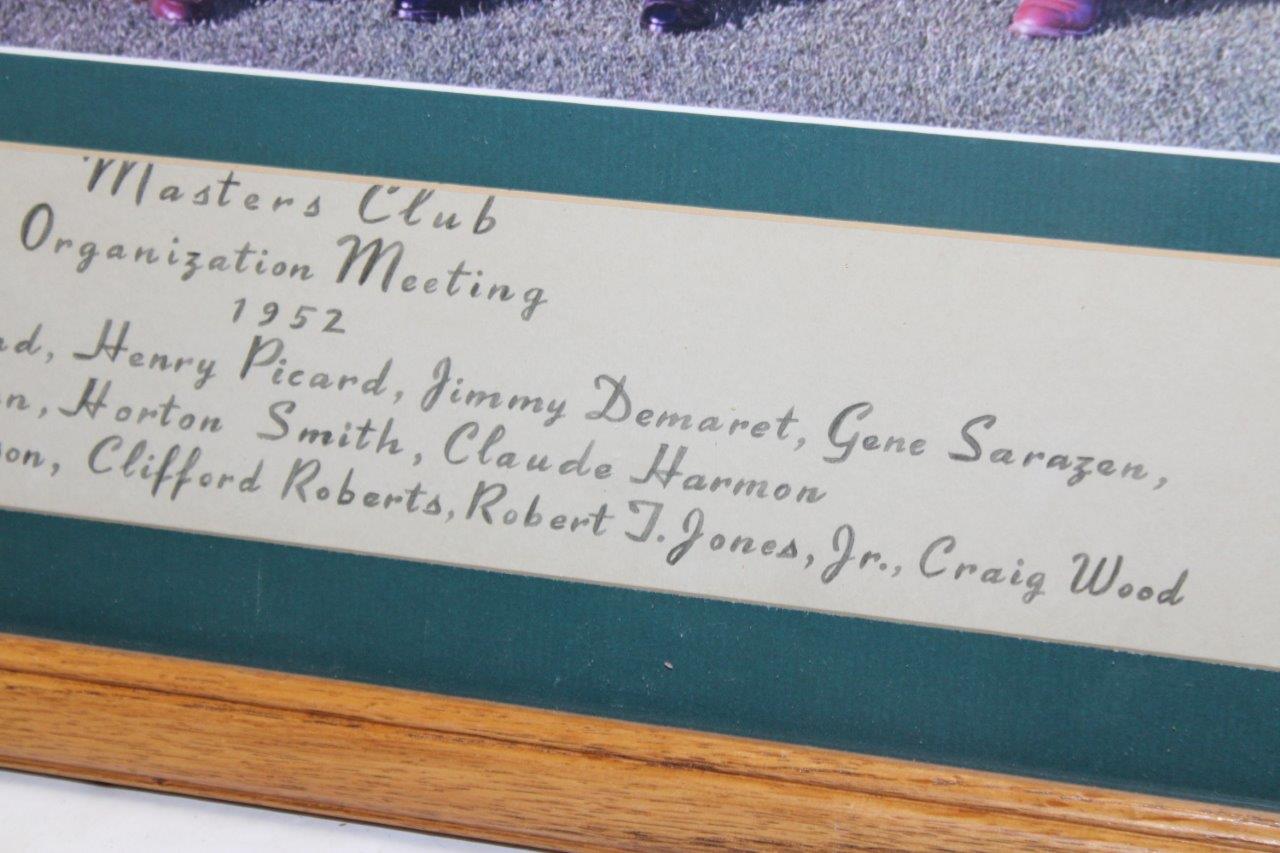 Masters Club
Organization Meeting
1952
Henry Picard, Jimmy Demaret, Gene Sarazen,
Horton Smith, Claude Harmon
Clifford Roberts, Robert T. Jones, Jr., Craig Wood